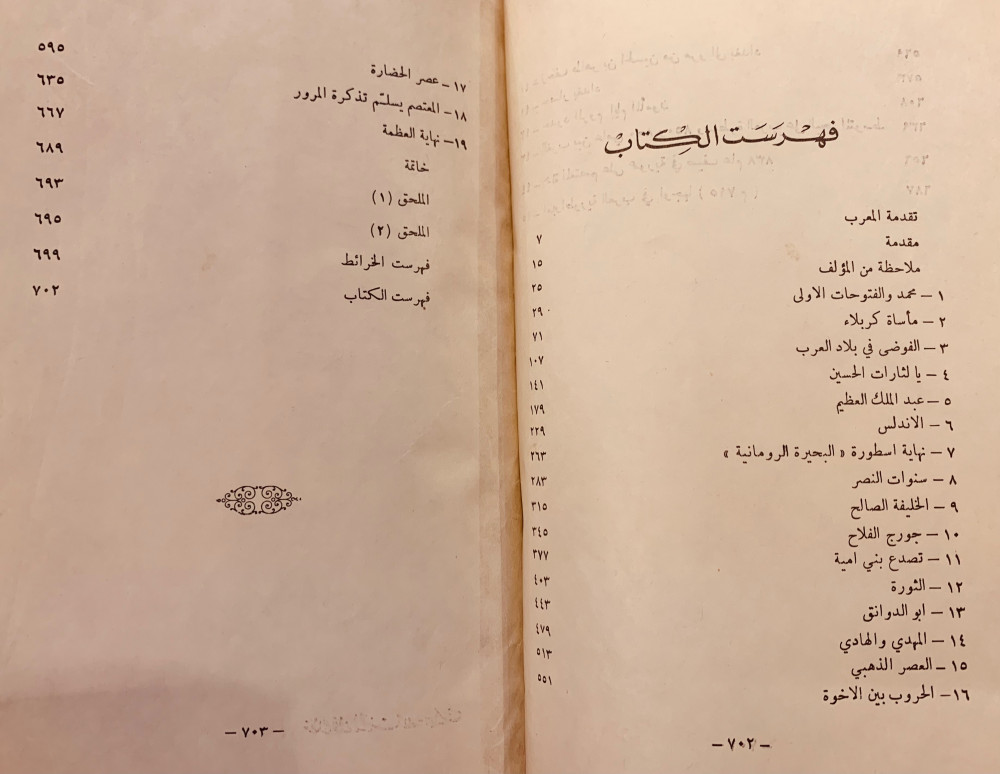 فهرست الكتاب
تقدمة المعرب ٧
مقدمة ١٥
ملاحظة من المؤلف ٢٥
١ – محمد والفتوحات الاولى ٢٩
٢ – مأساة كربلاء ٧١
٣ – الفوضى في بلاد العرب ١٠٧
٤ – يا لثارات الحسين ١٤١
٥ – عبد الملك العظيم ١٧٩
٦ – الاندلس ٢٢٩
٧ – نهاية اسطورة « البحيرة الرومانية » ٢٦٣
٨ – سنوات النصر ٢٨٣
٩ – الخليفة الصالح ٣١٥
١٠ – جورج الفلاح ٣٤٥
١١ – تصدع بني امية ٣٧٧
١٢ – الثورة ٤٠٣
١٣ – ابو الدوانق ٤٤٣
١٤ – المهدي والهادي ٤٧٩
١٥ – العصر الذهبي ٥١٣
١٦ – الحروب بين الاخوة ٥٥١
– ٧٠٢ –
١٧ – عصر الحضارة ٥٩٥
١٨ – المعتصم يسلتم تذكرة المرور ٦٣٥
١٩ – نهاية العظمة ٦٦٧
خاتمة ٦٨٩
الملحق (١) ٦٩٣
الملحق (٢) ٦٩٥
فهرست الخرائط ٦٩٩
فهرست الكتاب ٧٠٢
– ٧٠٣ –